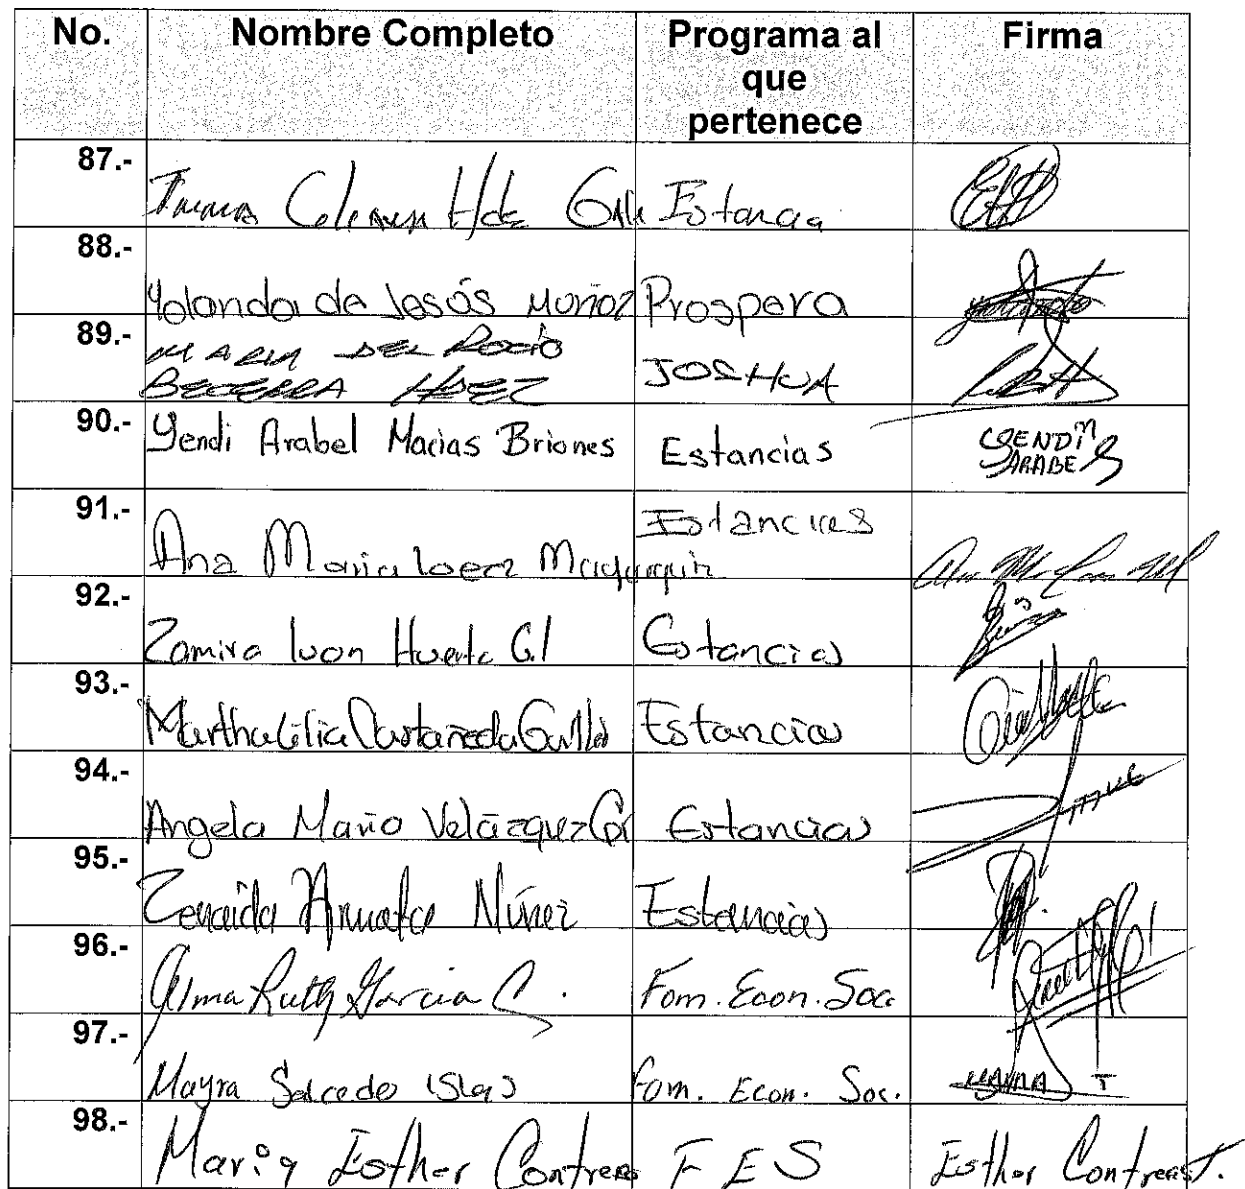 No. Nombre Completo Programa al que pertenece Firma
87.- Hdz Estancia
88.- Yolanda de Jesús Muñoz Prospera
89.- MARIA DEL ROCIO
BECERRA HDEZ JOSHUA
90.- Yendi Arabel Macias Briones Estancias YENDI ARABE
91.- Ana Maria Estancias
92.- Zamira Ivon Huerta G. Estancias
93.- Martha Celia Castañeda Estancias
94.- Angela Maria Velázquez Estancias
95.- Zenaida Núñez Estancias
96.- Alma Ruth Garcia C. Fom. Econ. Soc.
97.- Mayra Salcedo Islas Fom. Econ. Soc. MAYRA
98.- Maria Esther Contreras F E S Esther Contreras T.